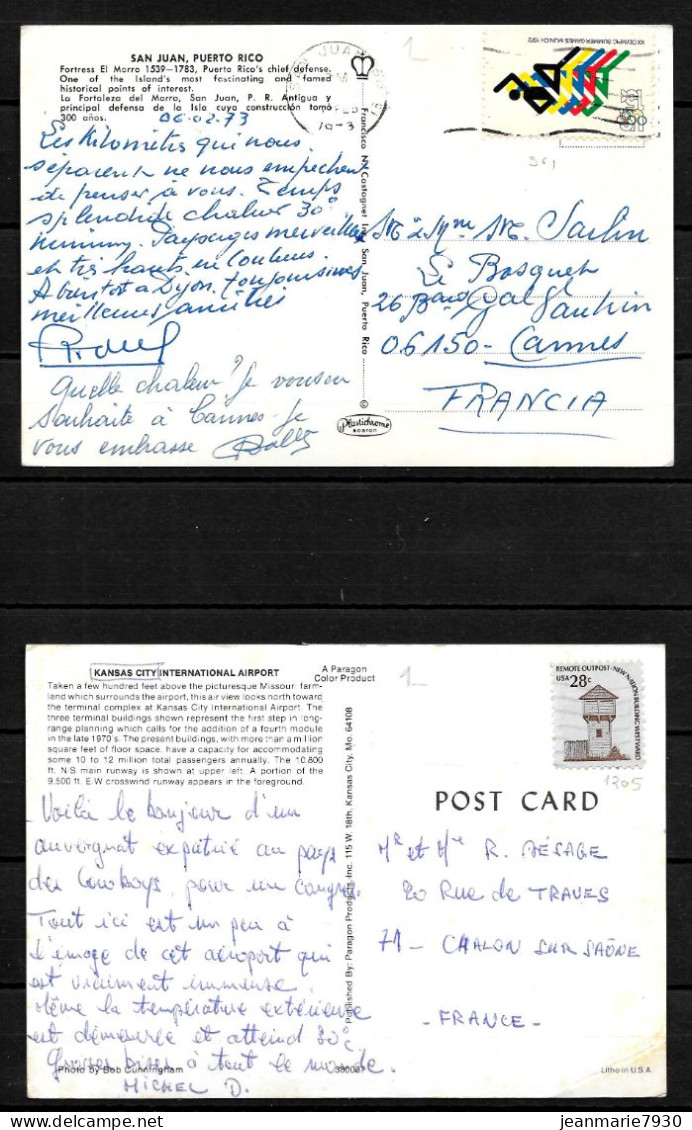 SAN JUAN, PUERTO RICO
Fortress El Morro 1539-1783, Puerto Rico's chief defense.
One of the Island's most fascinating and famed
historical points of interest.
La Fortaleza del Morro, San Juan, P. R. Antigua y
principal defensa de la Isla cuya construcción tomó
300 años.
06.02.73
Les Kilomètres qui nous
séparent ne nous empêchent
de penser à vous. Temps
splendide chaleur 30°
minimum. Paysages merveilleux
et très hauts en couleurs.
A bientôt à Dijon. toujours nos
meilleures amitiés
Quelle chaleur? Je vous en
souhaite à Cannes. Je
vous embrasse
Francisco
San Juan, Puerto Rico
©
Plastichrome
BOSTON
SAN JUAN
1
XX OLYMPIC SUMMER GAMES MUNICH 1972
Le Bosquet
26 Bard Gal Vautrin
06150 - Cannes
FRANCIA
KANSAS CITY INTERNATIONAL AIRPORT
Taken a few hundred feet above the picturesque Missouri farm-
land which surrounds the airport, this air view looks north toward
the terminal complex at Kansas City International Airport. The
three terminal buildings shown represent the first step in long-
range planning which calls for the addition of a fourth module
in the late 1970's. The present buildings, with more than a million
square feet of floor space, have a capacity for accommodating
some 10 to 12 million total passengers annually. The 10,800
ft. N/S main runway is shown at upper left. A portion of the
9,500 ft. E/W crosswind runway appears in the foreground.
A Paragon
Color Product
1
Voilà le bonjour d'un
auvergnat expatrié au pays
des Cowboys, pour un congrès.
Tout ici est un peu à
l'image de cet aéroport qui
est vraiment immense.
Même la température extérieure
est démesurée et atteind 30°c
Grosses bises à tout le monde.
MICHEL D.
Photo by Bob Cunningham
380087
Published By: Paragon Products, Inc. 115 W. 18th. Kansas City, Mo. 64108
REMOTE OUTPOST · NEW NATION BUILDING WESTWARD
USA 28c
1205
POST CARD
Mr et Me R. MÉSAGE
20 Rue de TRAVES
71 - CHALON SUR SAÔNE
- FRANCE -
Litho in U.S.A.
https://www.delcampe.net
jeanmarie7930